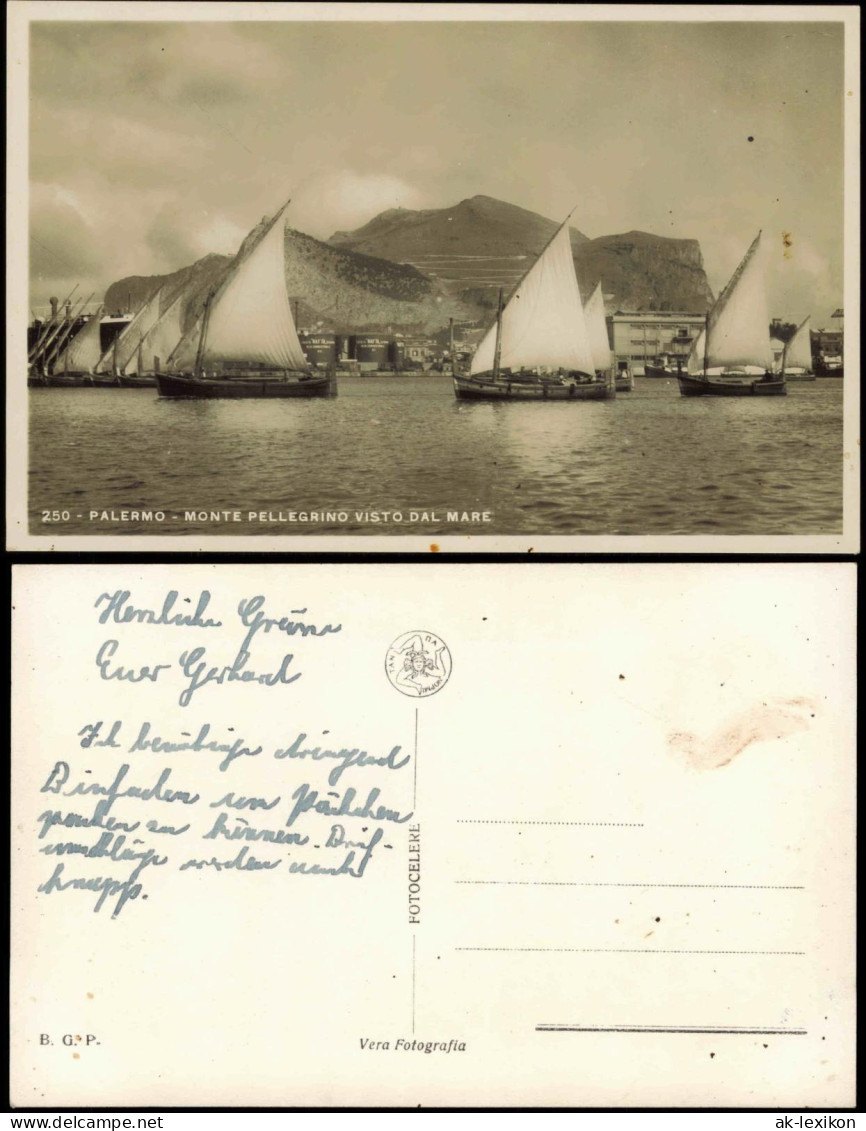 250 - PALERMO - MONTE PELLEGRINO VISTO DAL MARE
Herzliche Grüsse
Euer Gerhard
Ich benötige dringend
Bindfaden um Päckchen
packen zu können. Brief-
umschläge werden auch
knapp.
TAN ΠΑ
FOTOCELERE
B. G. P.
Vera Fotografia
www.ansichtskarten-lexikon.de
ak-lexikon